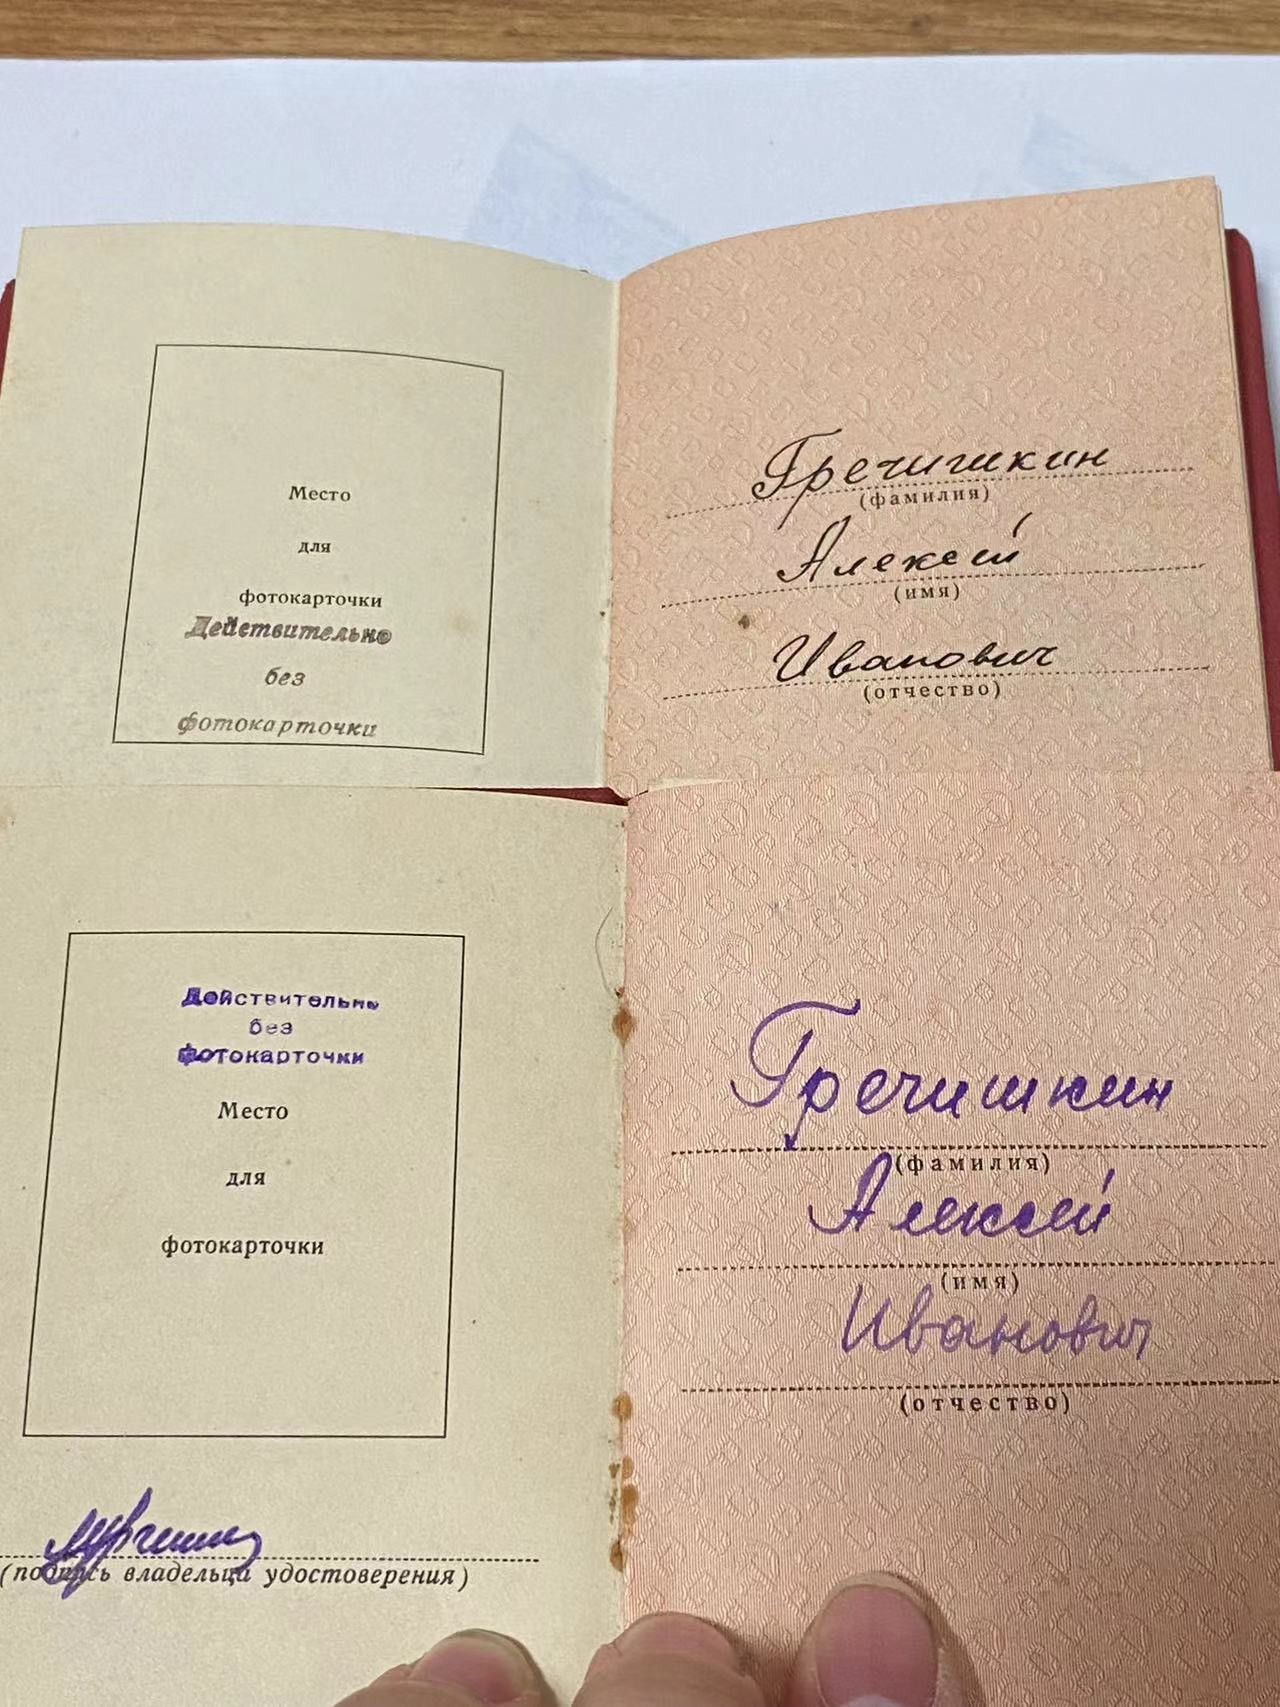 Место
для
фотокарточки
Действительно
без
фотокарточки
Гречишкин
(фамилия)
Алексей
(имя)
Иванович
(отчество)
Действительно
без
фотокарточки
Место
для
фотокарточки
(подпись владельца удостоверения)
Гречишкин
(фамилия)
Алексей
(имя)
Иванович
(отчество)